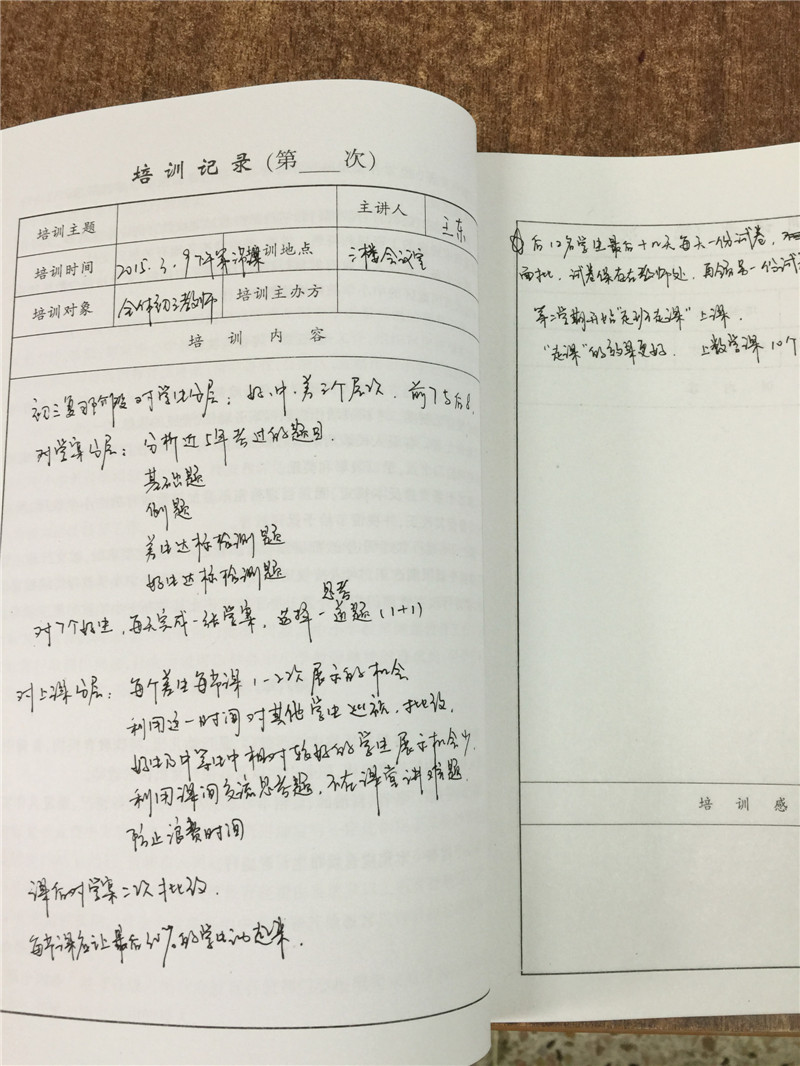 培训记录(第___次)
培训主题 主讲人 王东
培训时间 2015.3.9下午第 培训地点 三楼会议室
培训对象 全体初三教师 培训主办方
培训内容
初三复习阶段对学生分层：好、中、差三个层次．前7与后8．
对学案分层：分析近5年考过的题目．
基础题
例题
差生达标检测题
好生达标检测题
思考
对7个好生，每天完成一张学案，选择一道题(1+1)
对上课分层：每个差生每节课1-2次展示的机会
利用这一时间对其他学生巡视，批改，
好生及中等生中相对较好的学生展示机会少，
利用课间交流思考题，不在课堂讲难题．
防止浪费时间
课后对学案二次批改．
每节课应让最后10%的学生动起来．
后12名学生最后十几天每天一份试卷，
面批．试卷保存在教师处，再给另一份试
第二学期开始"走班走课"上课．
"走课"的效果更好．上数学课10个
培训感